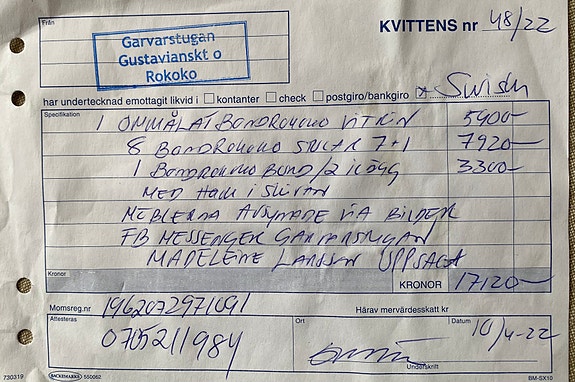 Från
Garvarstugan
Gustavianskt o
Rokoko
KVITTENS nr 48/22
har undertecknad emottagit likvid i kontanter check postgiro/bankgiro x Swish
Specifikation
1 OMMÅLAT BONDROKOKO VITRIN 5900-
8 BONDROKOKO STOLAR 7+1 7920-
1 BONDROKOKO BORD/2 ILÄGG 3300-
MED HACK I SKIVAN
MÖBLERNA AVSYNADE VIA BILDER
FB MESSENGER GARVARSTUGAN
MADELEINE LARSSON UPPSALA
Kronor KRONOR 17120-
Momsreg.nr 1962072971091 Härav mervärdesskatt kr
Attesteras Ort Datum 10/4-22
0705211984
Underskrift
730319 BACKEMARKS 550062 BM-SX10